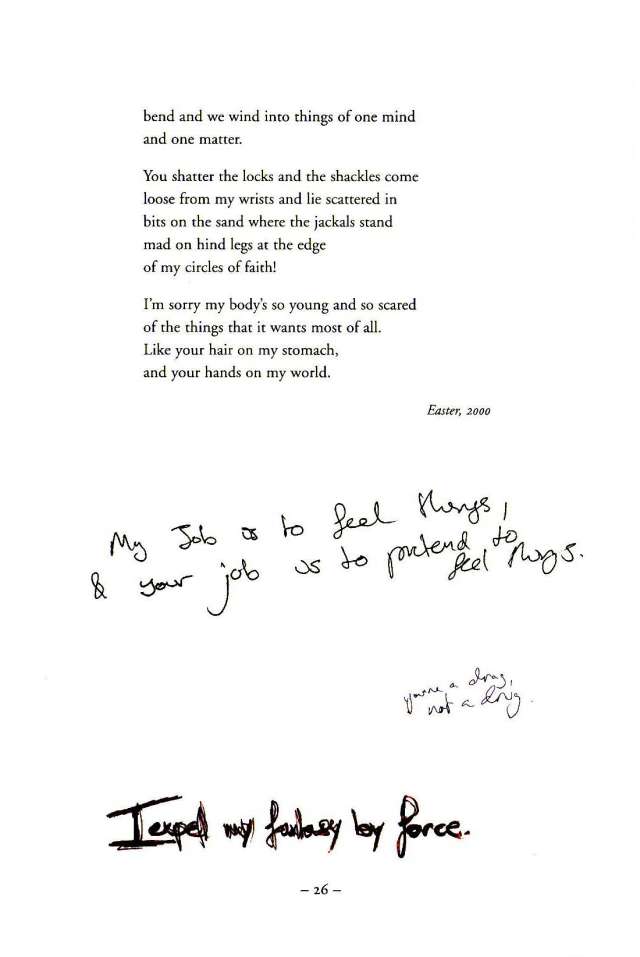 bend and we wind into things of one mind
and one matter.
You shatter the locks and the shackles come
loose from my wrists and lie scattered in
bits on the sand where the jackals stand
mad on hind legs at the edge
of my circles of faith!
I'm sorry my body's so young and so scared
of the things that it wants most of all.
Like your hair on my stomach,
and your hands on my world.
Easter, 2000
My Job is to feel things,
& your job is to pretend to
feel things.
you're a drag,
not a drug.
I expell my fantasy by force.
– 26 –